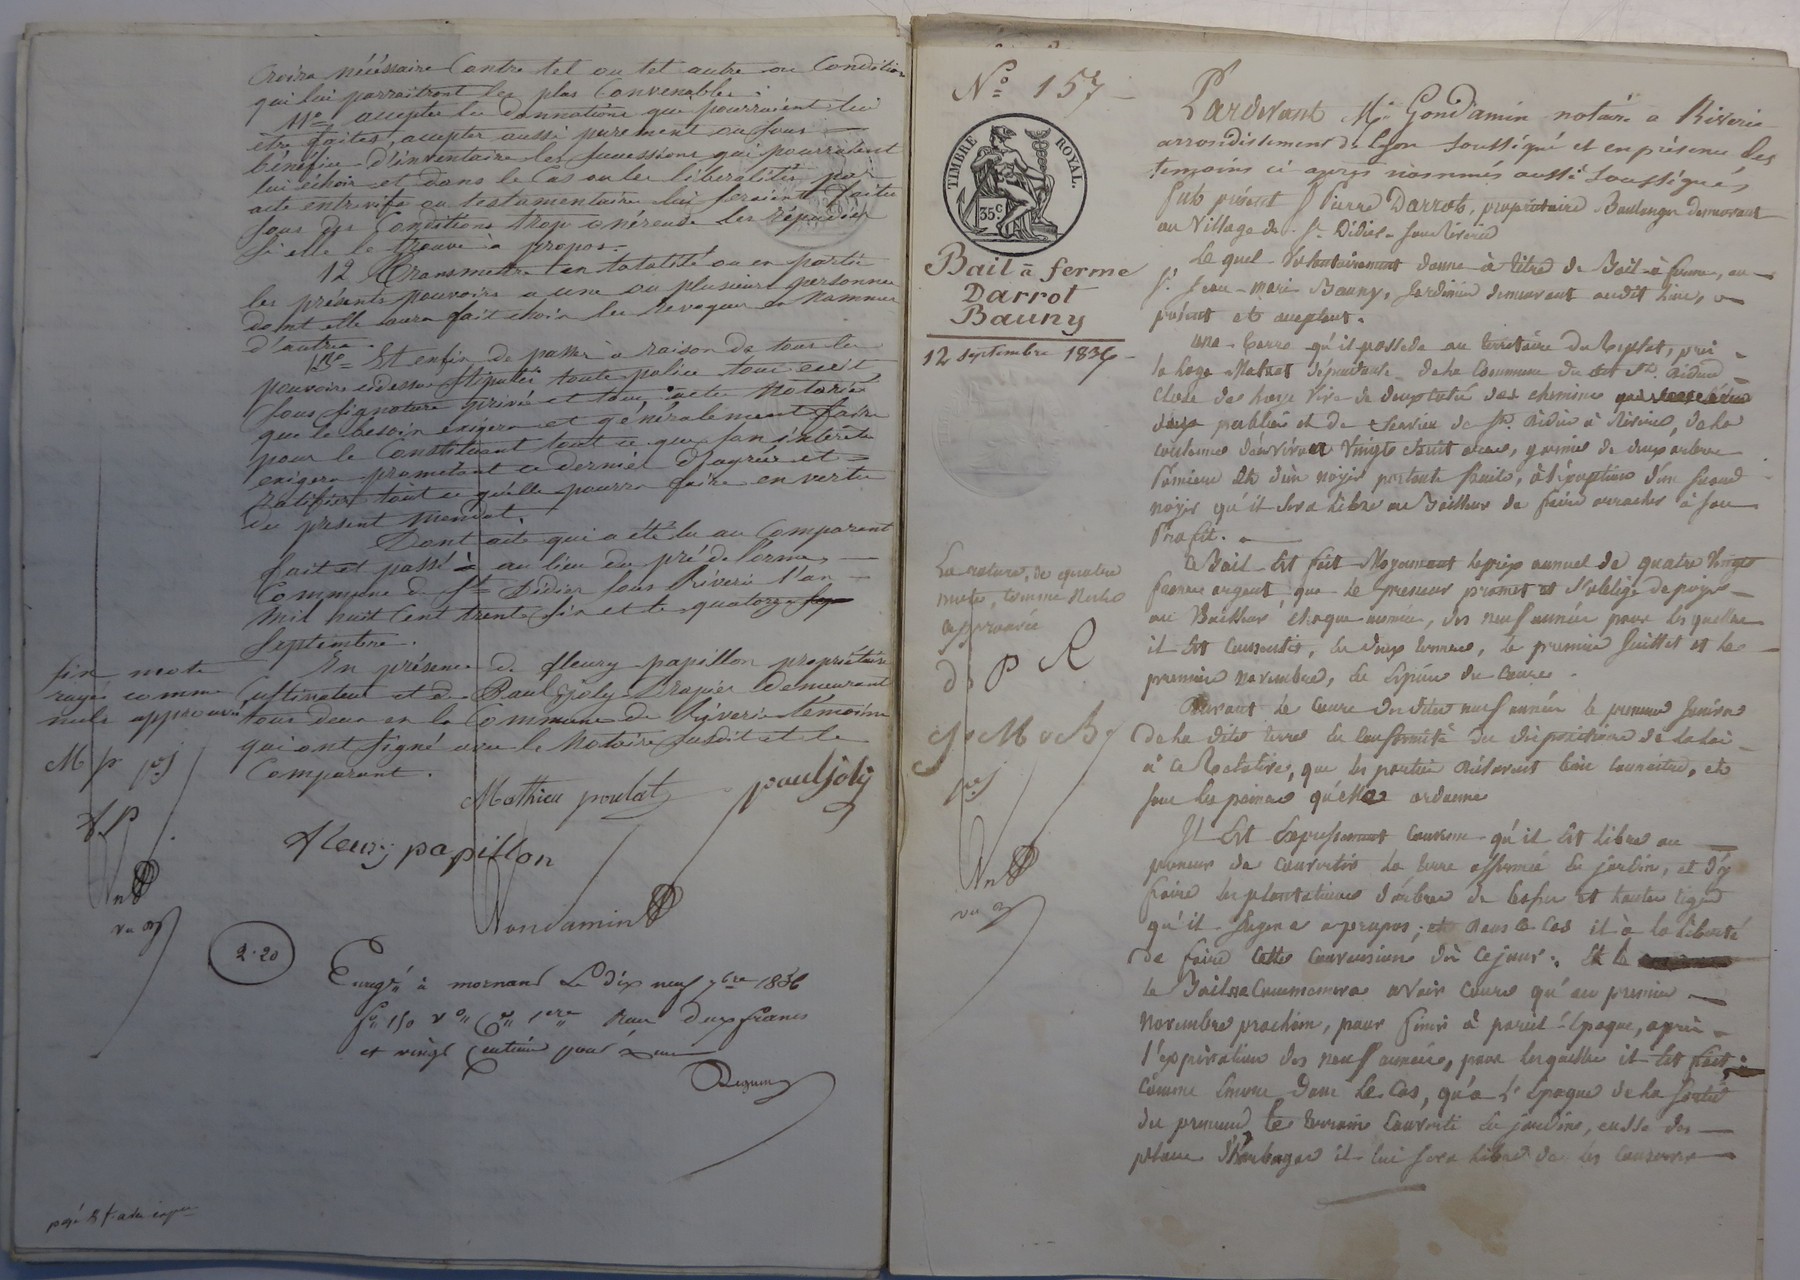 Croira nécéssaire Contre tel ou tel autre ou Condition
qui lui parraitront les plus Convenables.
11° accepter les donnations qui pourraient lui
être faites, accepter aussi purement ou sous
bénéfice d'inventaire les successions qui pourraient
lui échoir et dans le Cas ou les libéralités par
acte entrevifs ou testamentaire lui seraient faites
sous des Conditions trop onéreuse les répudier
si elle le trouve à propos.
12 Transmettre en totalité ou en partie
les présents pouvoirs a une ou plusieurs personnes
dont elle aura fait choix les revoquer en nommer
d'autres.
13° Et enfin de passer à raison de tous les
pouvoirs cidessus stipulés toute police tous ecrit
sous signature privée et tous actes Notariés
que le besoin exigera et généralement faire
pour le Constituant tout ce que son intérêts
exigera promettant ce dernier d'agréer et
Ratifier tout ce qu'elle pourra faire en vertu
du present mendat.
Dont acte qui a été lu au Comparant
fait et passé à au lieu du pré de l'orme
Commune de St Didier sous Riverie l'an
mil huit Cent trente six et le quatorze
Septembre.
En présence de fleury papillon propriétaire
Cultivateur et de Paul Joly Drapier demeurant
tous deux en la Commune de Riverie temoins
qui ont signé avec le Notaire susdit et le
Comparant.
six mots
rayés comme
nuls approuvé
M p pj
f.P
Mathieu poulat
paul joly
fleury papillon
Gondamin
2.20
Enregé à mornant Le dix neuf 7bre 1836
f° 150 v° Ce 1ere Recu deux francs
et vingt Centimes pour
N° 157
TIMBRE ROYAL.
35 c
Bail à ferme
Darrot
Bauny
12 septembre 1836
La rature, de quatre
mots, comme nuls
approuvée
d P R
J M B
pj
Pardevant Me Gondamin notaire a Riverie
arrondissement de Lyon soussigné et en présence des
temoins ci après nommés aussi soussignés
fut présent Sr Pierre Darrot, propriétaire Boulanger demeurant
au Village de St Didier sous Riverie
Le quel Volontairement donne à titre de Bail à ferme, au
Sr Jean-Marie Bauny, Jardinier demeurant audit lieu,
présent et acceptant.
une terre qu'il possede au territoire du
la Loge Matrat dépendante de la Commune du dit St Didier
Close de haye Vive de deux cotés des chemins
publics et de service de St Didier à Riverie, de la
contenue d'environ Vingt huit ares, garnie de deux arbres
et d'un noyer portant fruits, à l'exception d'un grand
noyer qu'il sera libre au Bailleur de faire arracher à son
Profit.
Ce Bail Est fait Moyennant le prix annuel de quatre Vingts
francs argent que le preneur promet et s'oblige de payer
au Bailleur chaque année, des neuf années pour les quelles
il Est consentis, en deux termes, le premier Juillet et le
premier novembre,
Durant le Cours des dites neuf années le preneur Jouira
de la dite terre en conformité des dispositions de la loi
à ce Relative, que les parties déclarent bien connaitre, et
sous les peines qu'elle ordonne
Il Est Expressement convenu qu'il Est libre au
preneur de convertir la terre affermée en jardin, et d'y
faire les plantations d'arbres de basse et hautes tiges
qu'il Jugera apropos; et dans ce Cas il à la liberté
de faire cette conversion dès ce jour. Et le
le Bail ne Commencera avoir cours qu'au premier
Novembre prochain, pour finir à pareil Epoque, après
l'expiration des neuf années, pour lesquelles il Est fait
Comme Encore dans le Cas, qu'à l'Epoque de la sortie
du preneur le terrain Converti en jardin, eusse des
plants d'herbages il lui sera libre de les conserver